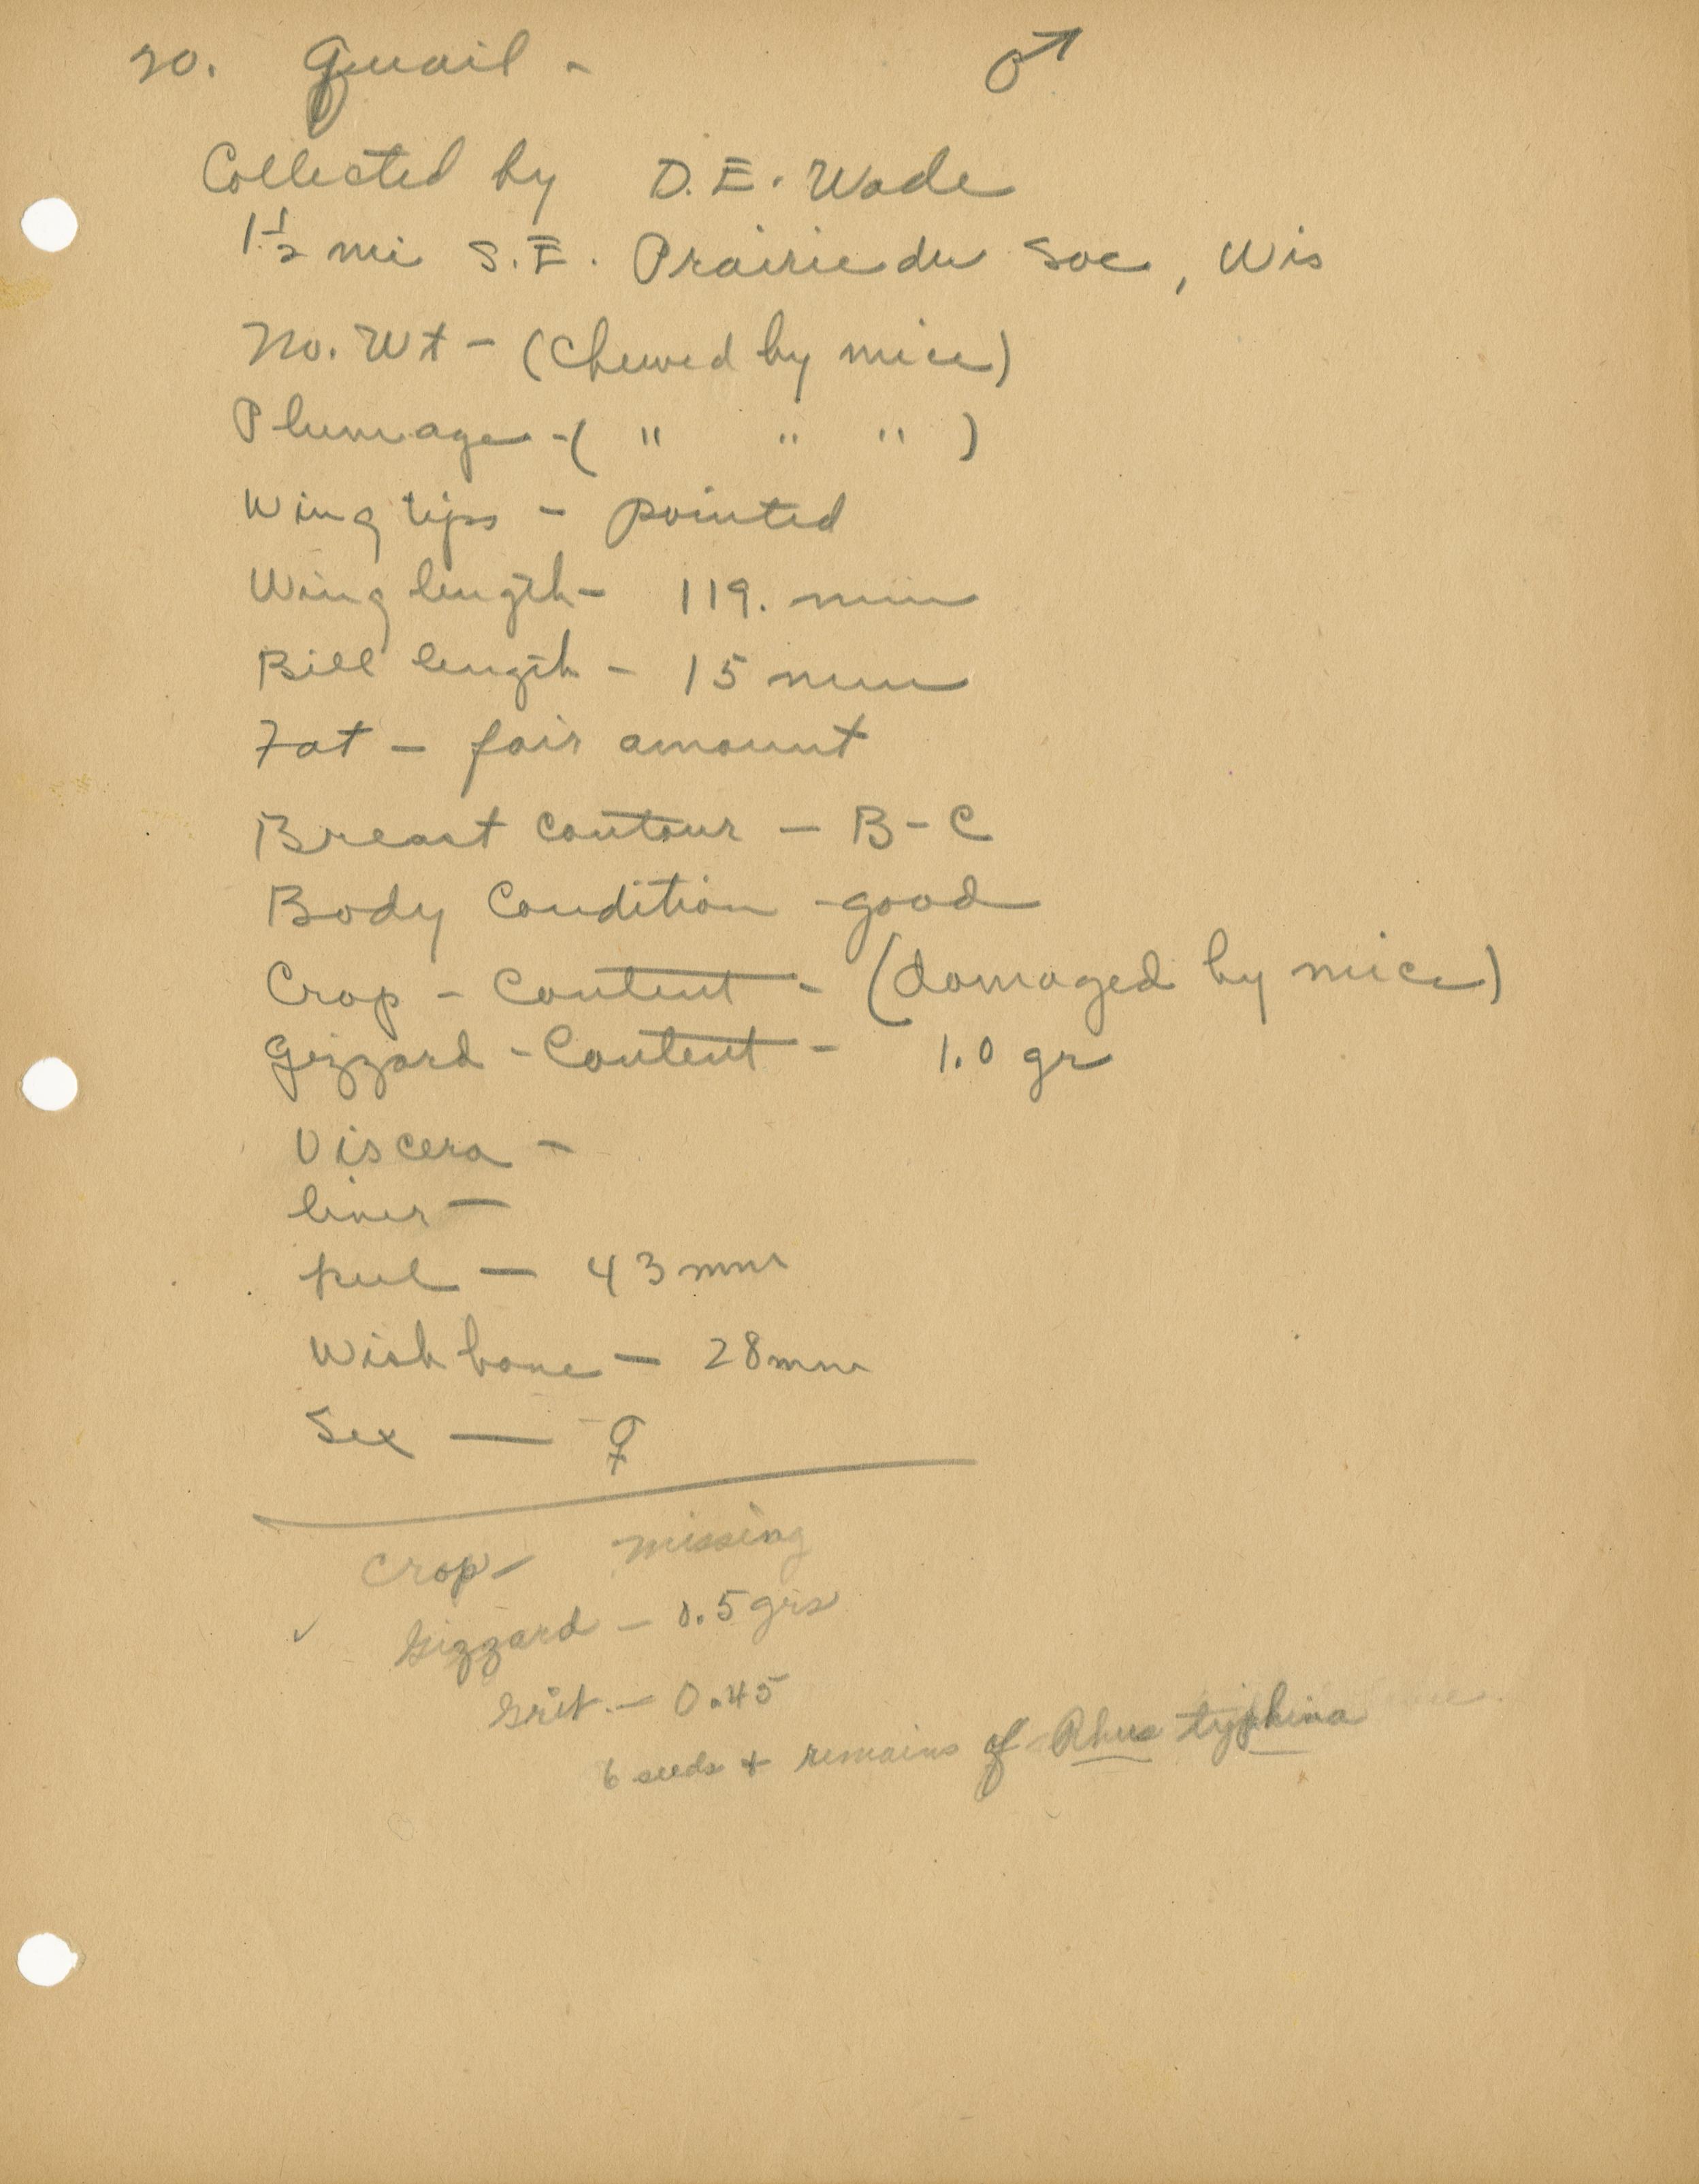 20. Quail - ♂
Collected by D.E. Wade
1½ mi S.E. Prairie du Sac, Wis
No. Wt - (Chewed by mice)
Plumage - ( " " " )
Wing tips - pointed
Wing length - 119. mm
Bill length - 15 mm
Fat - fair amount
Breast Contour - B-C
Body Condition - good
Crop - Content - (damaged by mice)
Gizzard - Content - 1.0 gr
Viscera -
liver -
keel - 43 mm
Wishbone - 28 mm
Sex - ♀
Crop - missing
✓ Gizzard - 0.5 grs
Grit. - 0.45
6 seeds + remains of Rhus typhina